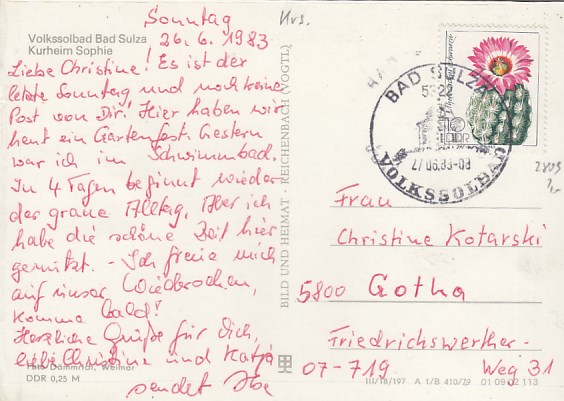 Volkssolbad Bad Sulza
Kurheim Sophie
Sonntag
26.6.1983
Liebe Christine! Es ist der
letzte Sonntag und noch keine
Post von Dir. Hier haben wir
heut ein Gartenfest. Gestern
war ich im Schwimmbad.
In 4 Tagen beginnt wieder
der graue Alltag, Aber ich
habe die schöne Zeit hier
genützt. - Ich freue mich
auf unser Wiedersehen,
komme bald!
Herzliche Grüße für Dich,
liebe Christine und Katja
sendet
Foto Dammrich, Weimar
DDR 0,25 M
BILD UND HEIMAT · REICHENBACH (VOGTL)
Krs.
BAD SULZA
5322
27.06.83-08
VOLKSSOLBAD
10
DDR
Frau
Christine Kotarski
5800 Gotha
Friedrichswerther-
07-719 Weg 31
III/18/197 A 1/B 410/79 01 09 02 113